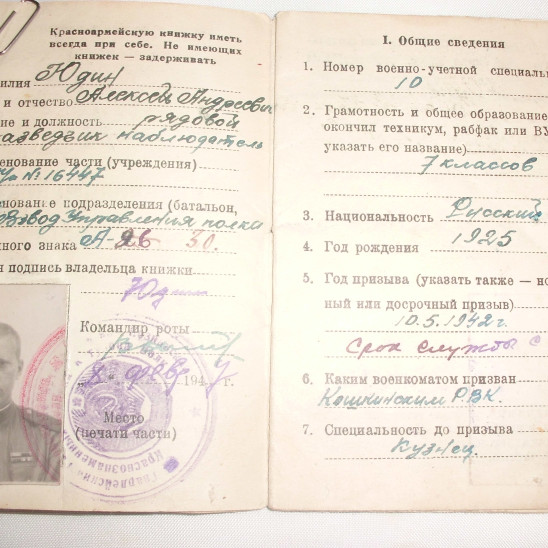 Красноармейскую книжку иметь
всегда при себе. Не имеющих
книжек — задерживать
илия Юдин
и отчество Алексей Андреевич
ние и должность рядовой
разведчик наблюдатель
енование части (учреждения)
№ 16447
енование подразделения (батальон,
Взвод Управления полка
ного знака А-ЯБ 30.
я подпись владельца книжки
Юдин
Командир роты
февр 194 г.
Место
(печати части)
Гвардейский
Краснознаменный
I. Общие сведения
1. Номер военно-учетной специаль
10
2. Грамотность и общее образование
окончил техникум, рабфак или ВУ
указать его название)
7 классов
3. Национальность Русский
4. Год рождения 1925
5. Год призыва (указать также — но
ный или досрочный призыв)
10.5.1942г.
Срок службы с
6. Каким военкоматом призван
Кошкинским РВК.
7. Специальность до призыва
Кузнец.